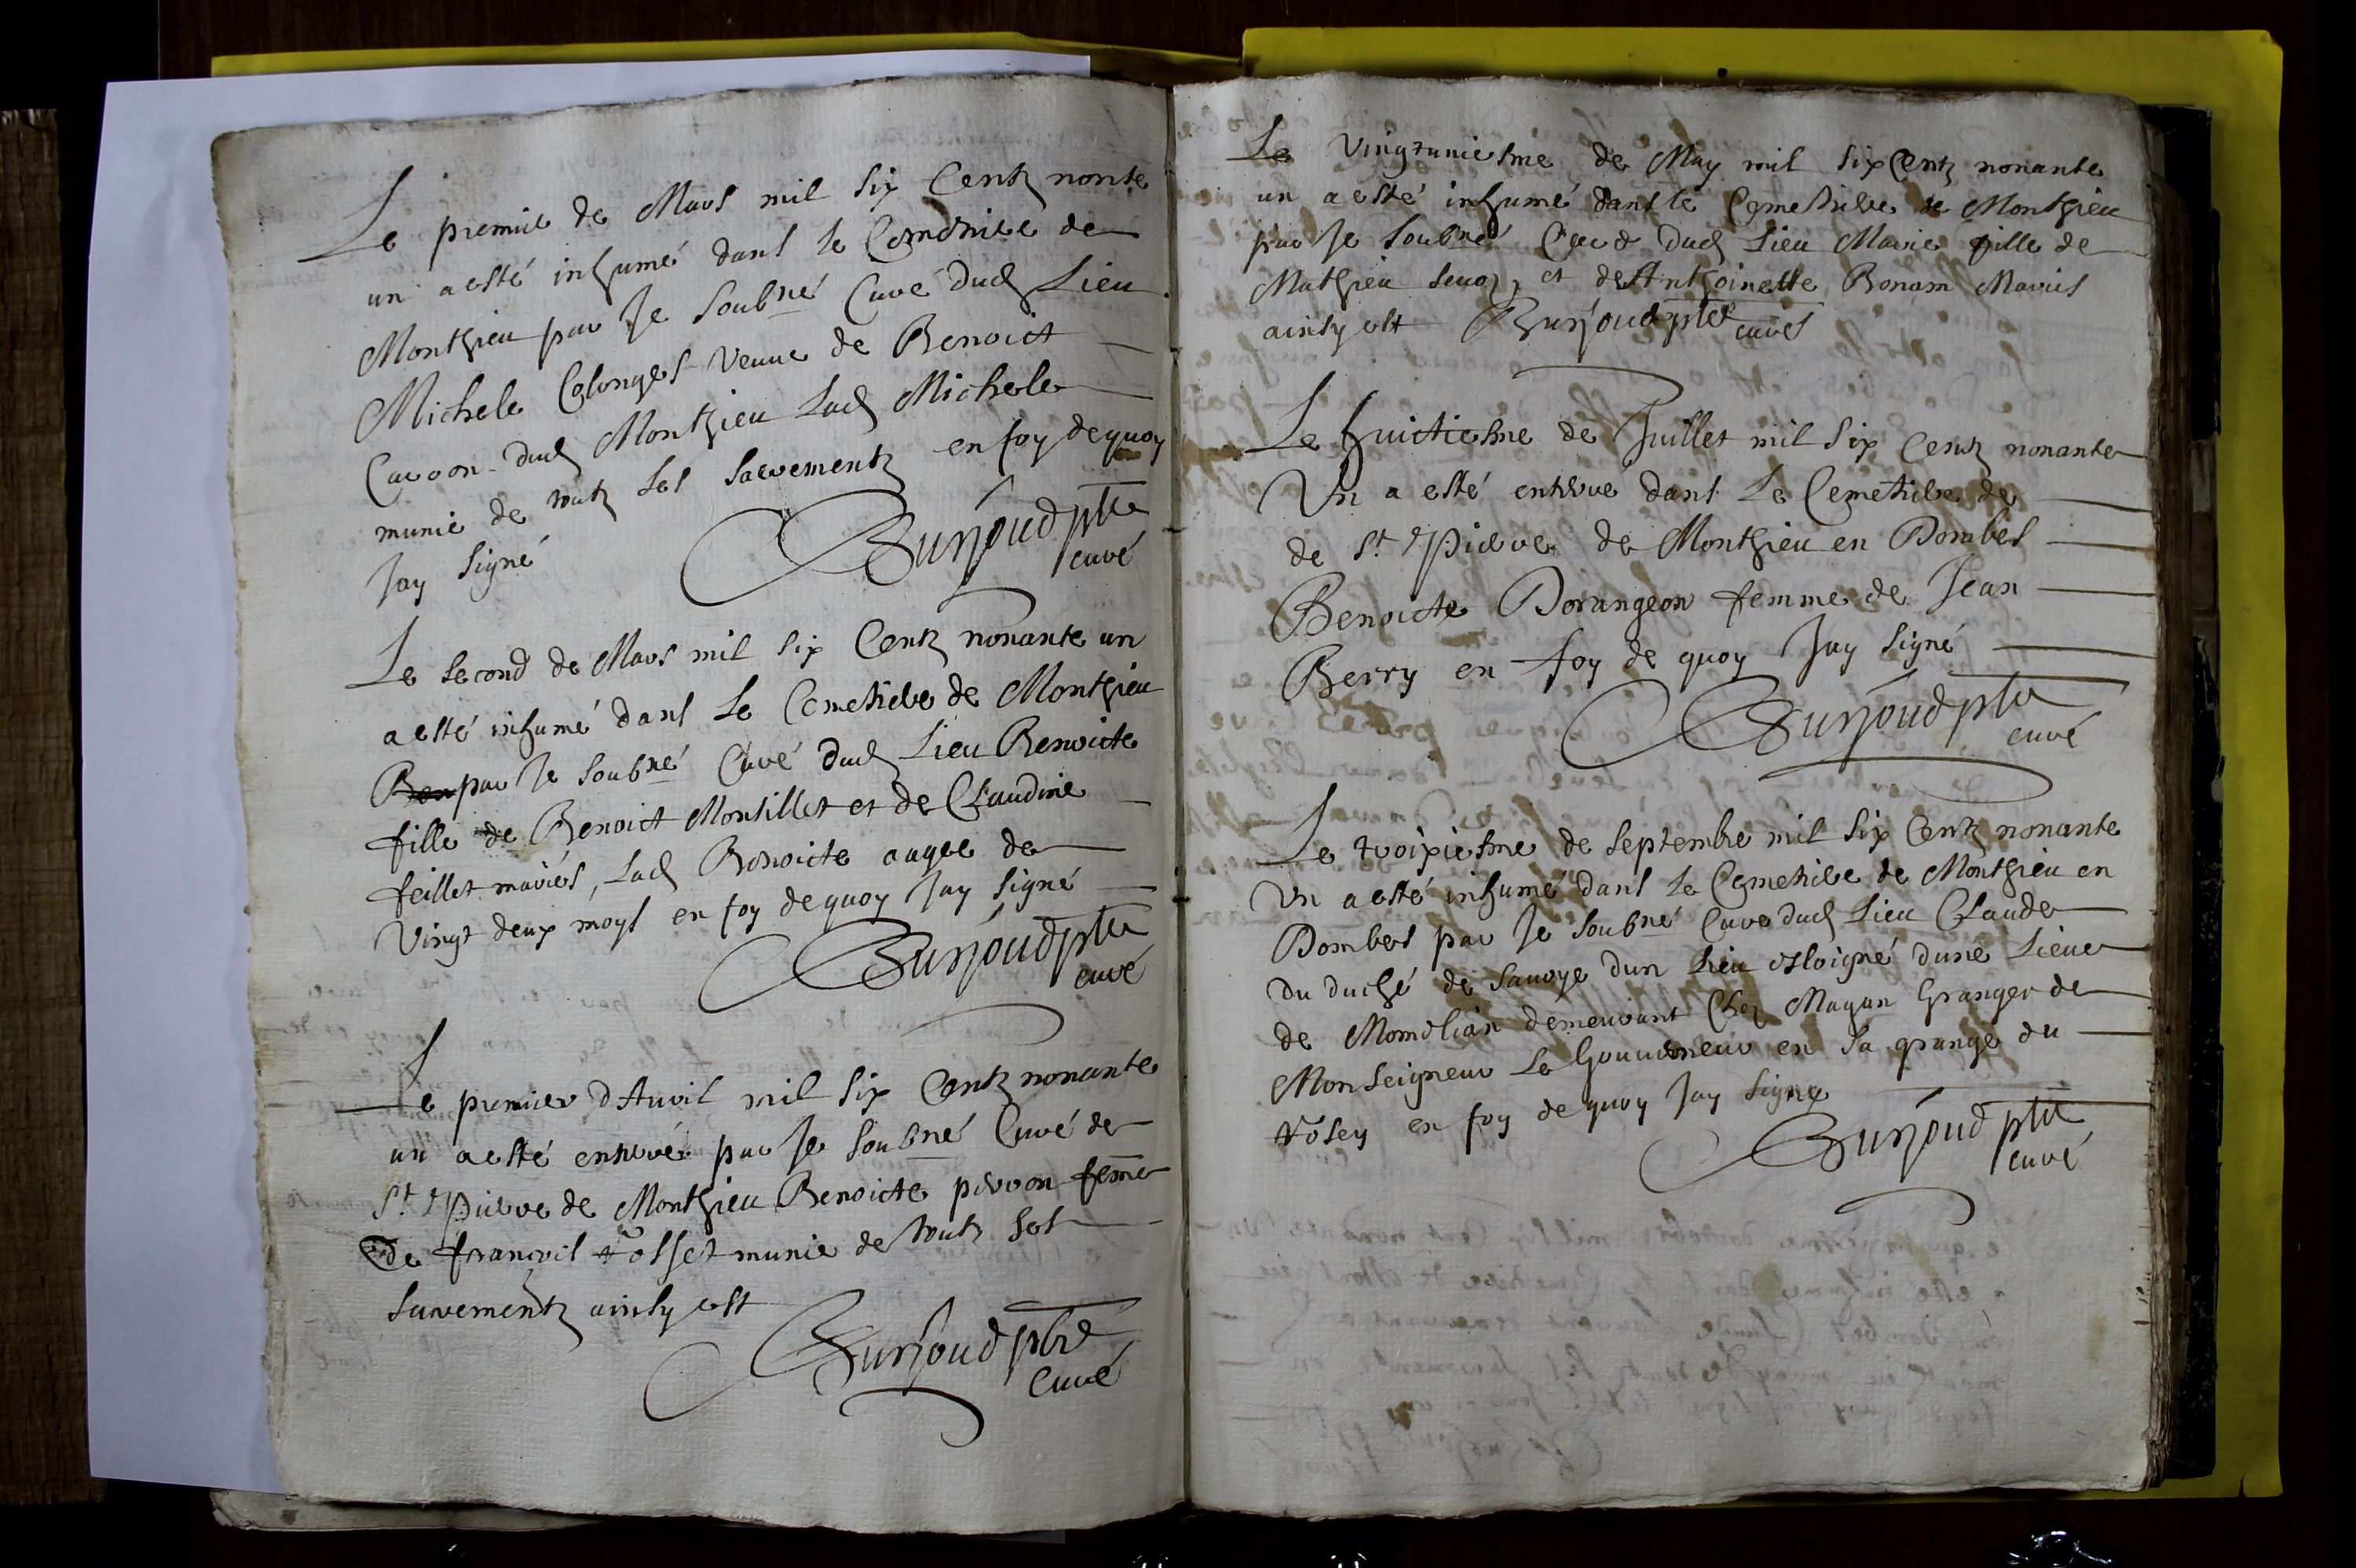 Le premier de Mars mil six Centz nonte
un a esté inhumé dans le Cemetiere de
Monthieu par Je soubné Curé dud Lieu
Michele Colonges veuue de Benoict
Caroon dud Monthieu Lad Michele
munie de touts ses sacrements en foy de quoy
Jay signé
Burjoud ptre
curé
Le second de Mars mil six Centz nonante un
a esté inhumé dans le Cemetiere de Monthieu
par Je soubné Curé dud Lieu Benoicte
fille de Benoict Monsillet et de Claudine
feillet mariés, Lad Benoicte augee de
Vingt deux moys en foy de quoy Jay signé
Burjoud ptre
curé
Le premier d'Auril mil six Centz nonante
un a esté enterré par Je soubné Curé de
St Pierre de Monthieu Benoicte perron feme
de françois fosset munie de touts ses
sacrementz ainsy est
Burjoud ptre
Curé
Le Vingtuniesme de May mil six Centz nonante
un a esté inhumé dans le Cemetiere de Monthieu
par Je soubné Curé dud Lieu Marie fille de
Mathieu et de Anthoinette Bonam Mariés
ainsy est Burjoud ptre curé
Le huictiesme de Juillet mil six Centz nonante
Vn a esté enterré dans Le Cemetiere de
de St Pierre de Monthieu en Dombes
Benoicte Dorangeon femme de Jean
Berry en foy de quoy Jay signé
Burjoud ptre
curé
Le troixiesme de septembre mil six Centz nonante
Vn a esté inhumé dans le Cemetiere de Monthieu en
Dombes par Je soubné Curé dud Lieu Claude
du duché de Sauoye dun Lieu esloigné dune Lieue
de Momelian demeurant Chez Mayan Granger de
Monseigneur Le Gouuerneur en sa grange du
en foy de quoy Jay signé
Burjoud ptre
curé